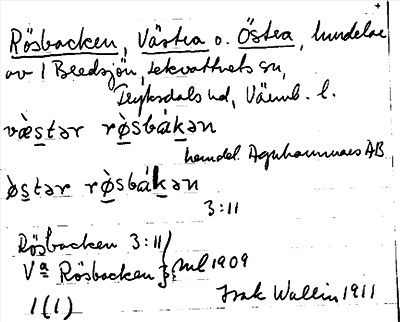 Rösbacken, Västra o. Östra, hemdelar
av 1 Bredsjön, Lekvattnets sn,
Fryksdals hd, Värml. l.
væ̀stər rø̀sbákən
hemdel. Agnhammars AB
ø̀stər rø̀sbákən
3:11
Rösbacken 3:11
Va Rösbacken 3: Jrl 1909
1(1)
Isak Wallin 1911